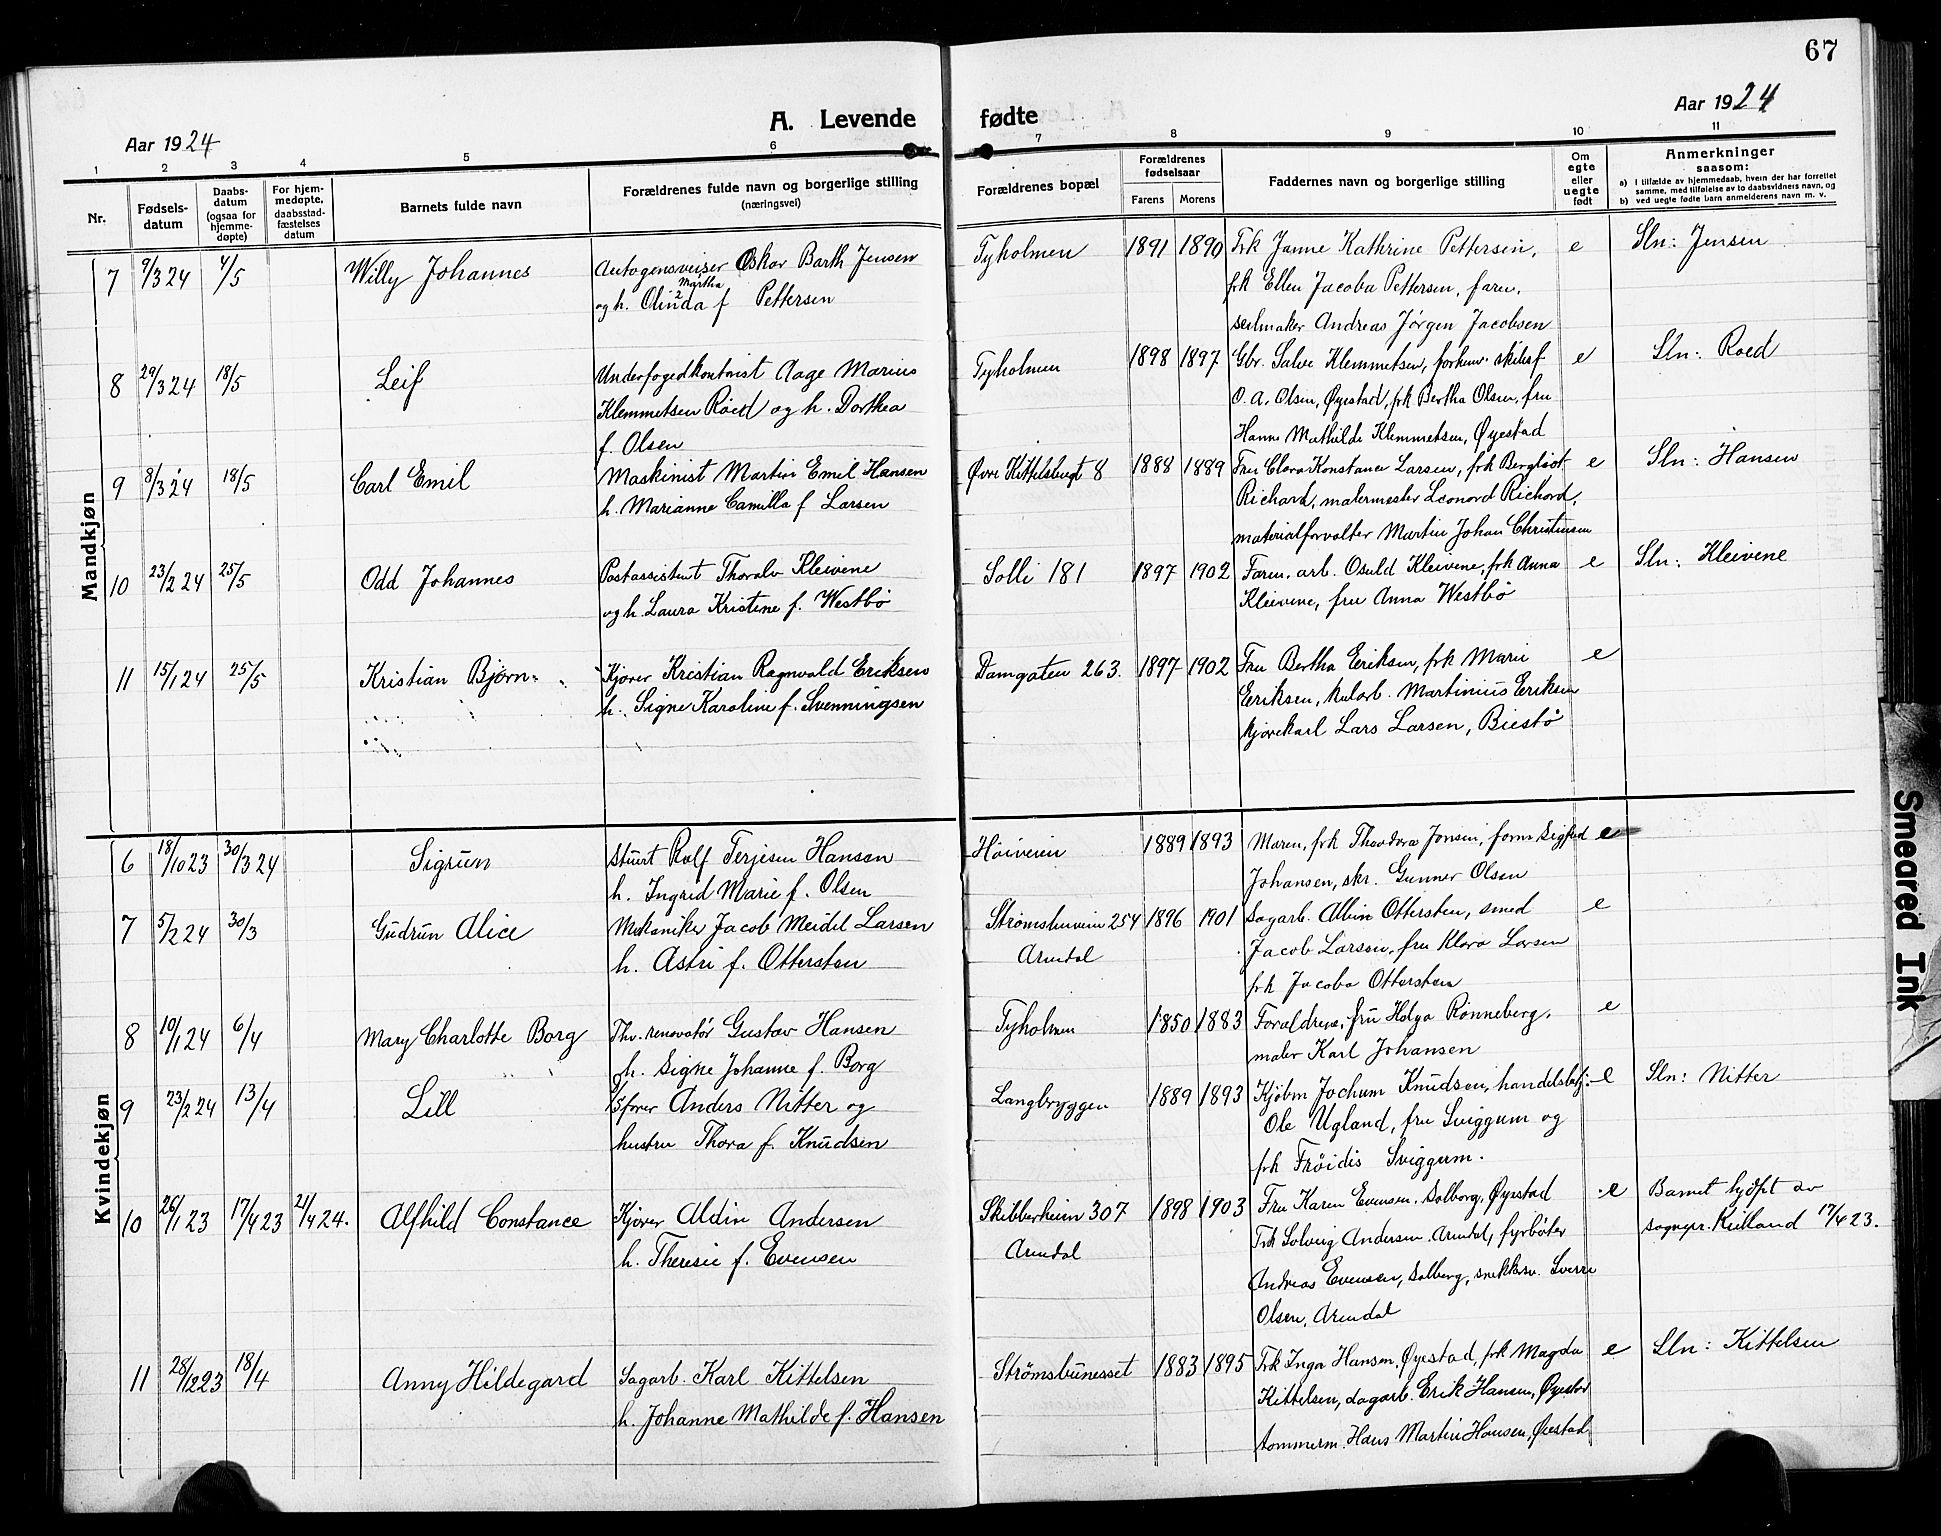 67
Aar 1924
A. Levende fødte
Aar 1924
1 2 3 4 5 6 7 8 9 10 11
Nr.
Fødsels-
datum
Daabs-
datum
(ogsaa for
hjemme-
døpte)
For hjem-
medøpte,
daabsstad-
fæstelses
datum
Barnets fulde navn
Forældrenes fulde navn og borgerlige stilling
(næringsvei)
Forældrenes bopæl
Forældrenes
fødselsaar
Farens Morens
Faddernes navn og borgerlige stilling
Om
egte
eller
uegte
født
Anmerkninger
saasom:
a) I tilfælde av hjemmedaab, hvem der har forrettet
samme, med tilføielse av to daabsvidners navn, og
b) ved uegte fødte barn anmelderens navn m. v.
Mandkjøn
7 9/3 24 4/5 Willy Johannes
Autogensveiser Oskar Barth Jensen
Martha
og h. Olinda f Pettersen
Tyholmen 1891 1890
Frk Janne Kathrine Pettersen,
frk Ellen Jacoba Pettersen, faren,
seilmaker Andreas Jørgen Jacobsen
e Sln: Jensen
8 29/3 24 18/5 Leif
Underfogedkontorist Aage Marius
Klemmetsen Roed og h. Dorthea
f. Olsen
Tyholmen 1898 1897
Gbr. Salve Klemmetsen, forhenv. skibsf
O. A. Olsen, Øyestad, frk Bertha Olsen, fru
Hanne Mathilde Klemmetsen, Øyestad
e Sln: Roed
9 8/3 24 18/5 Carl Emil
Maskinist Martin Emil Hansen
h. Marianne Camilla f Larsen
Øvre Kittelsbugt 8 1888 1889
Fru Clara Konstance Larsen, frk Bergliot
Richard, malermester Leonord Richard,
materialforvalter Martin Johan Christensen
e Sln: Hansen
10 23/2 24 25/5 Odd Johannes
Postassistent Thoralv Kleivene
og h. Laura Kristine f. Westbø
Solli 181 1897 1902
Faren, arb. Osuld Kleivene, frk Anna
Kleivene, fru Anna Westbø
e Sln: Kleivene
11 15/1 24 25/5 Kristian Bjørn
Kjører Kristian Ragnvald Eriksen
h. Signe Karoline f. Svenningsen
Damgaten 263. 1897 1902
Fru Bertha Eriksen, frk Marie
Eriksen, kularb. Martinius Eriksen
kjørekarl Lars Larsen, Biestø
e
Kvindekjøn
6 18/10 23 30/3 24 Sigrun
Stuert Rolf Terjesen Hanson
h. Ingrid Marie f. Olsen
Høiveien 1889 1893
Moren, frk Theodora Jonsen, form Sigfred
Johansen, skr. Gunner Olsen
e
7 5/2 24 30/3 Gudrun Alice
Mekaniker Jacob Meidel Larsen
h. Astri f. Ottersten
Strømsbuveien 254
Arendal
1896 1901
Sagarb. Albin Ottersten, smed
Jacob Larsen, fru Klara Larsen
frk Jacoba Ottersten
e
8 10/1 24 6/4 Mary Charlotte Borg
Thv. renovatør Gustav Hansen
h. Signe Johanne f. Borg
Tyholmen 1850 1883
Forældrene, fru Helga Rønneberg,
maler Karl Johansen
e
9 23/2 24 13/4 Lill
Anders Nitter og
hustru Thora f. Knudsen
Langbryggen 1889 1893
Kjøbm Jochum Knudsen, handelsbetj.
Ole Ugland, fru Sviggum og
frk Frøidis Sviggum.
e Sln: Nitter
10 26/1 23 17/4 23 21/4 24. Alfhild Constance
Kjører Aldin Andersen
h. Theresie f. Evensen
Skibberheim 307
Arendal
1898 1903
Fru Karen Evensen, Solborg, Øyestad
Frk Solveig Andersen Arendal, fyrbøter
Andreas Evensen, Solberg, snekkersv. Sverre
Olsen, Arendal
e Barnet hjdpt av
sognepr. Kielland 17/4 23.
11 28/12 23 18/4 Anny Hildegard
Sagarb. Karl Kittelsen
h. Johanne Mathilde f. Hansen
Strømsbunesset 1883 1895
Frk Inga Hansen, Øyestad, frk Magda
Kittelsen, dagarb. Erik Hansen, Øyestad
tømmerm. Hans Martin Hansen, Øiestad
e Sln: Kittelsen
Smeared Ink